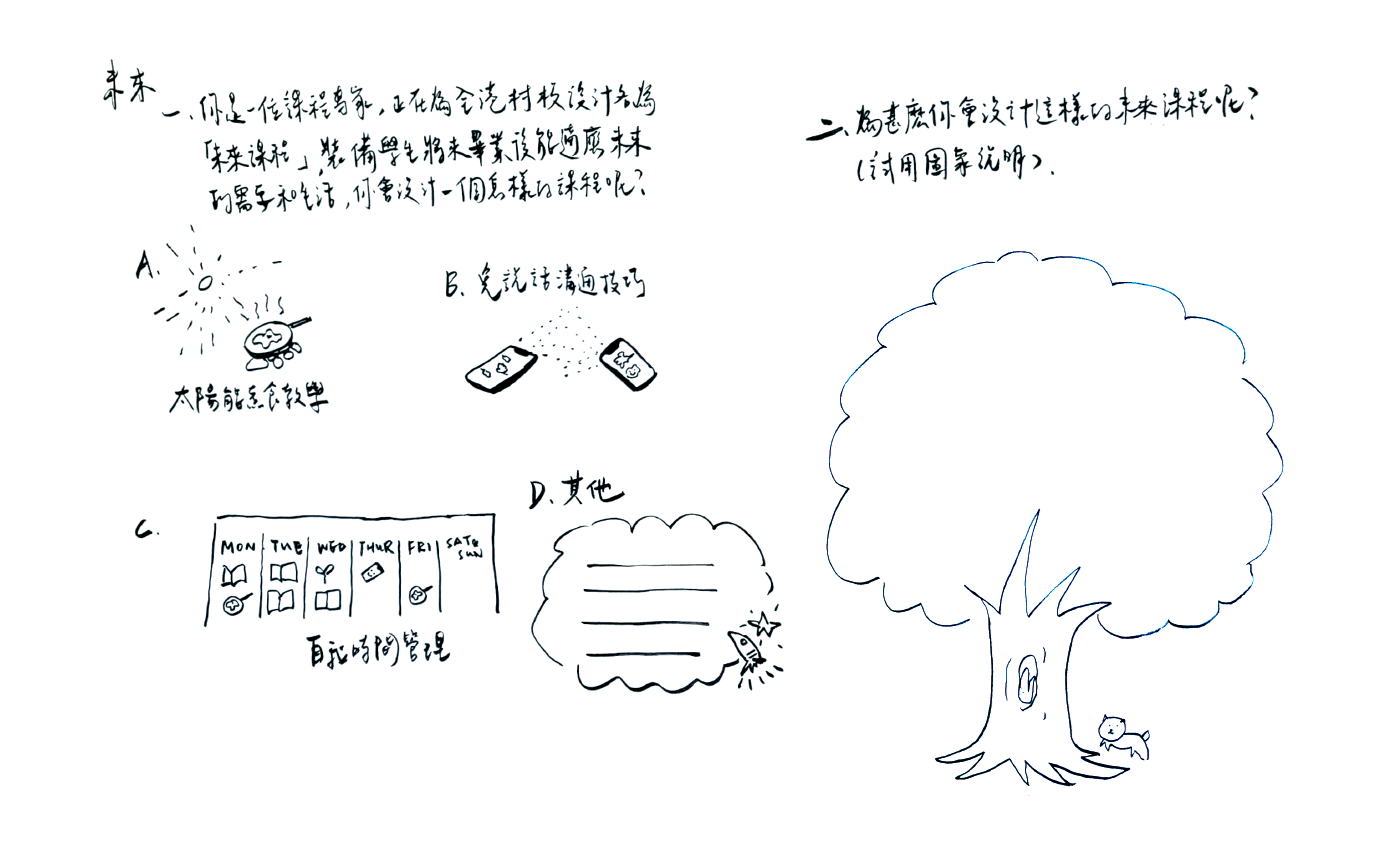 未來
一、你是一位課程專家，正在為全港村校設計名為
「未來課程」，裝備學生將來畢業後能適應未來
的需要和生活，你會設計一個怎樣的課程呢？
A.
太陽能煮食教學
B. 免說話溝通技巧
C.
MON TUE WED THUR FRI SAT& SUN
自私時間管理
D. 其他
二、為甚麼你會設計這樣的未來課程呢？
（試用圖象說明）.